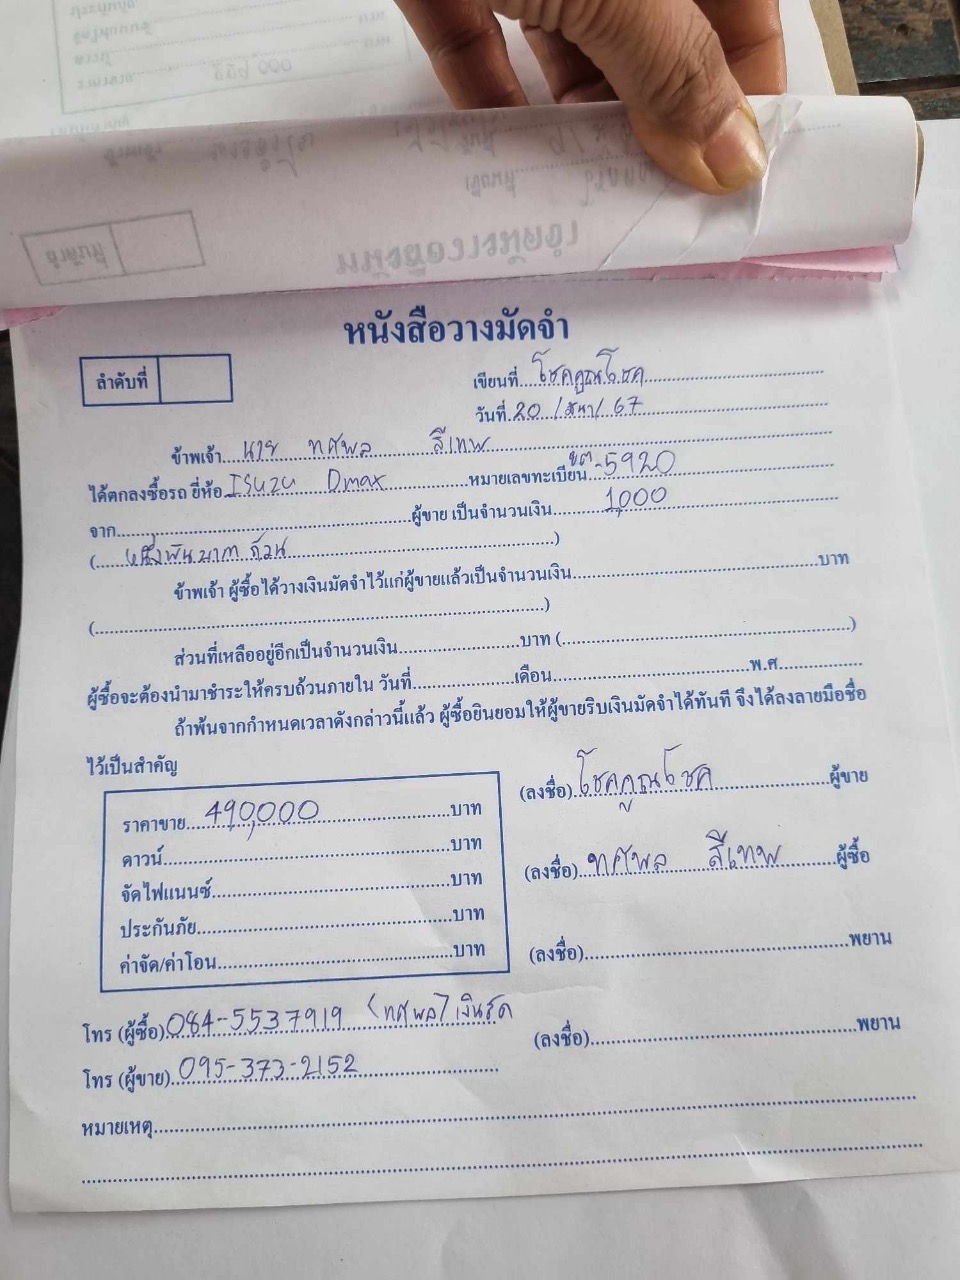 หนังสือวางมัดจำ
ลำดับที่
เขียนที่ โชคคูณโชค
วันที่ 20 / มีนา / 67
ข้าพเจ้า นาย ทศพล สีเทพ
ได้ตกลงซื้อรถ ยี่ห้อ ISUZU Dmax หมายเลขทะเบียน ขต-5920
จาก ผู้ขาย เป็นจำนวนเงิน 1,000
( หนึ่งพันบาท ถ้วน )
ข้าพเจ้า ผู้ซื้อได้วางเงินมัดจำไว้แก่ผู้ขายแล้วเป็นจำนวนเงิน บาท
( )
ส่วนที่เหลืออยู่อีกเป็นจำนวนเงิน บาท ( )
ผู้ซื้อจะต้องนำมาชำระให้ครบถ้วนภายใน วันที่ เดือน พ.ศ.
ถ้าพ้นจากกำหนดเวลาดังกล่าวนี้แล้ว ผู้ซื้อยินยอมให้ผู้ขายริบเงินมัดจำได้ทันที จึงได้ลงลายมือชื่อ
ไว้เป็นสำคัญ
ราคาขาย 490,000 บาท
ดาวน์ บาท
จัดไฟแนนซ์ บาท
ประกันภัย บาท
ค่าจัด/ค่าโอน บาท
(ลงชื่อ) โชคคูณโชค ผู้ขาย
(ลงชื่อ) ทศพล สีเทพ ผู้ซื้อ
(ลงชื่อ) พยาน
(ลงชื่อ) พยาน
โทร (ผู้ซื้อ) 084-5537919 (ทศพล)
โทร (ผู้ขาย) 095-373-2152
หมายเหตุ